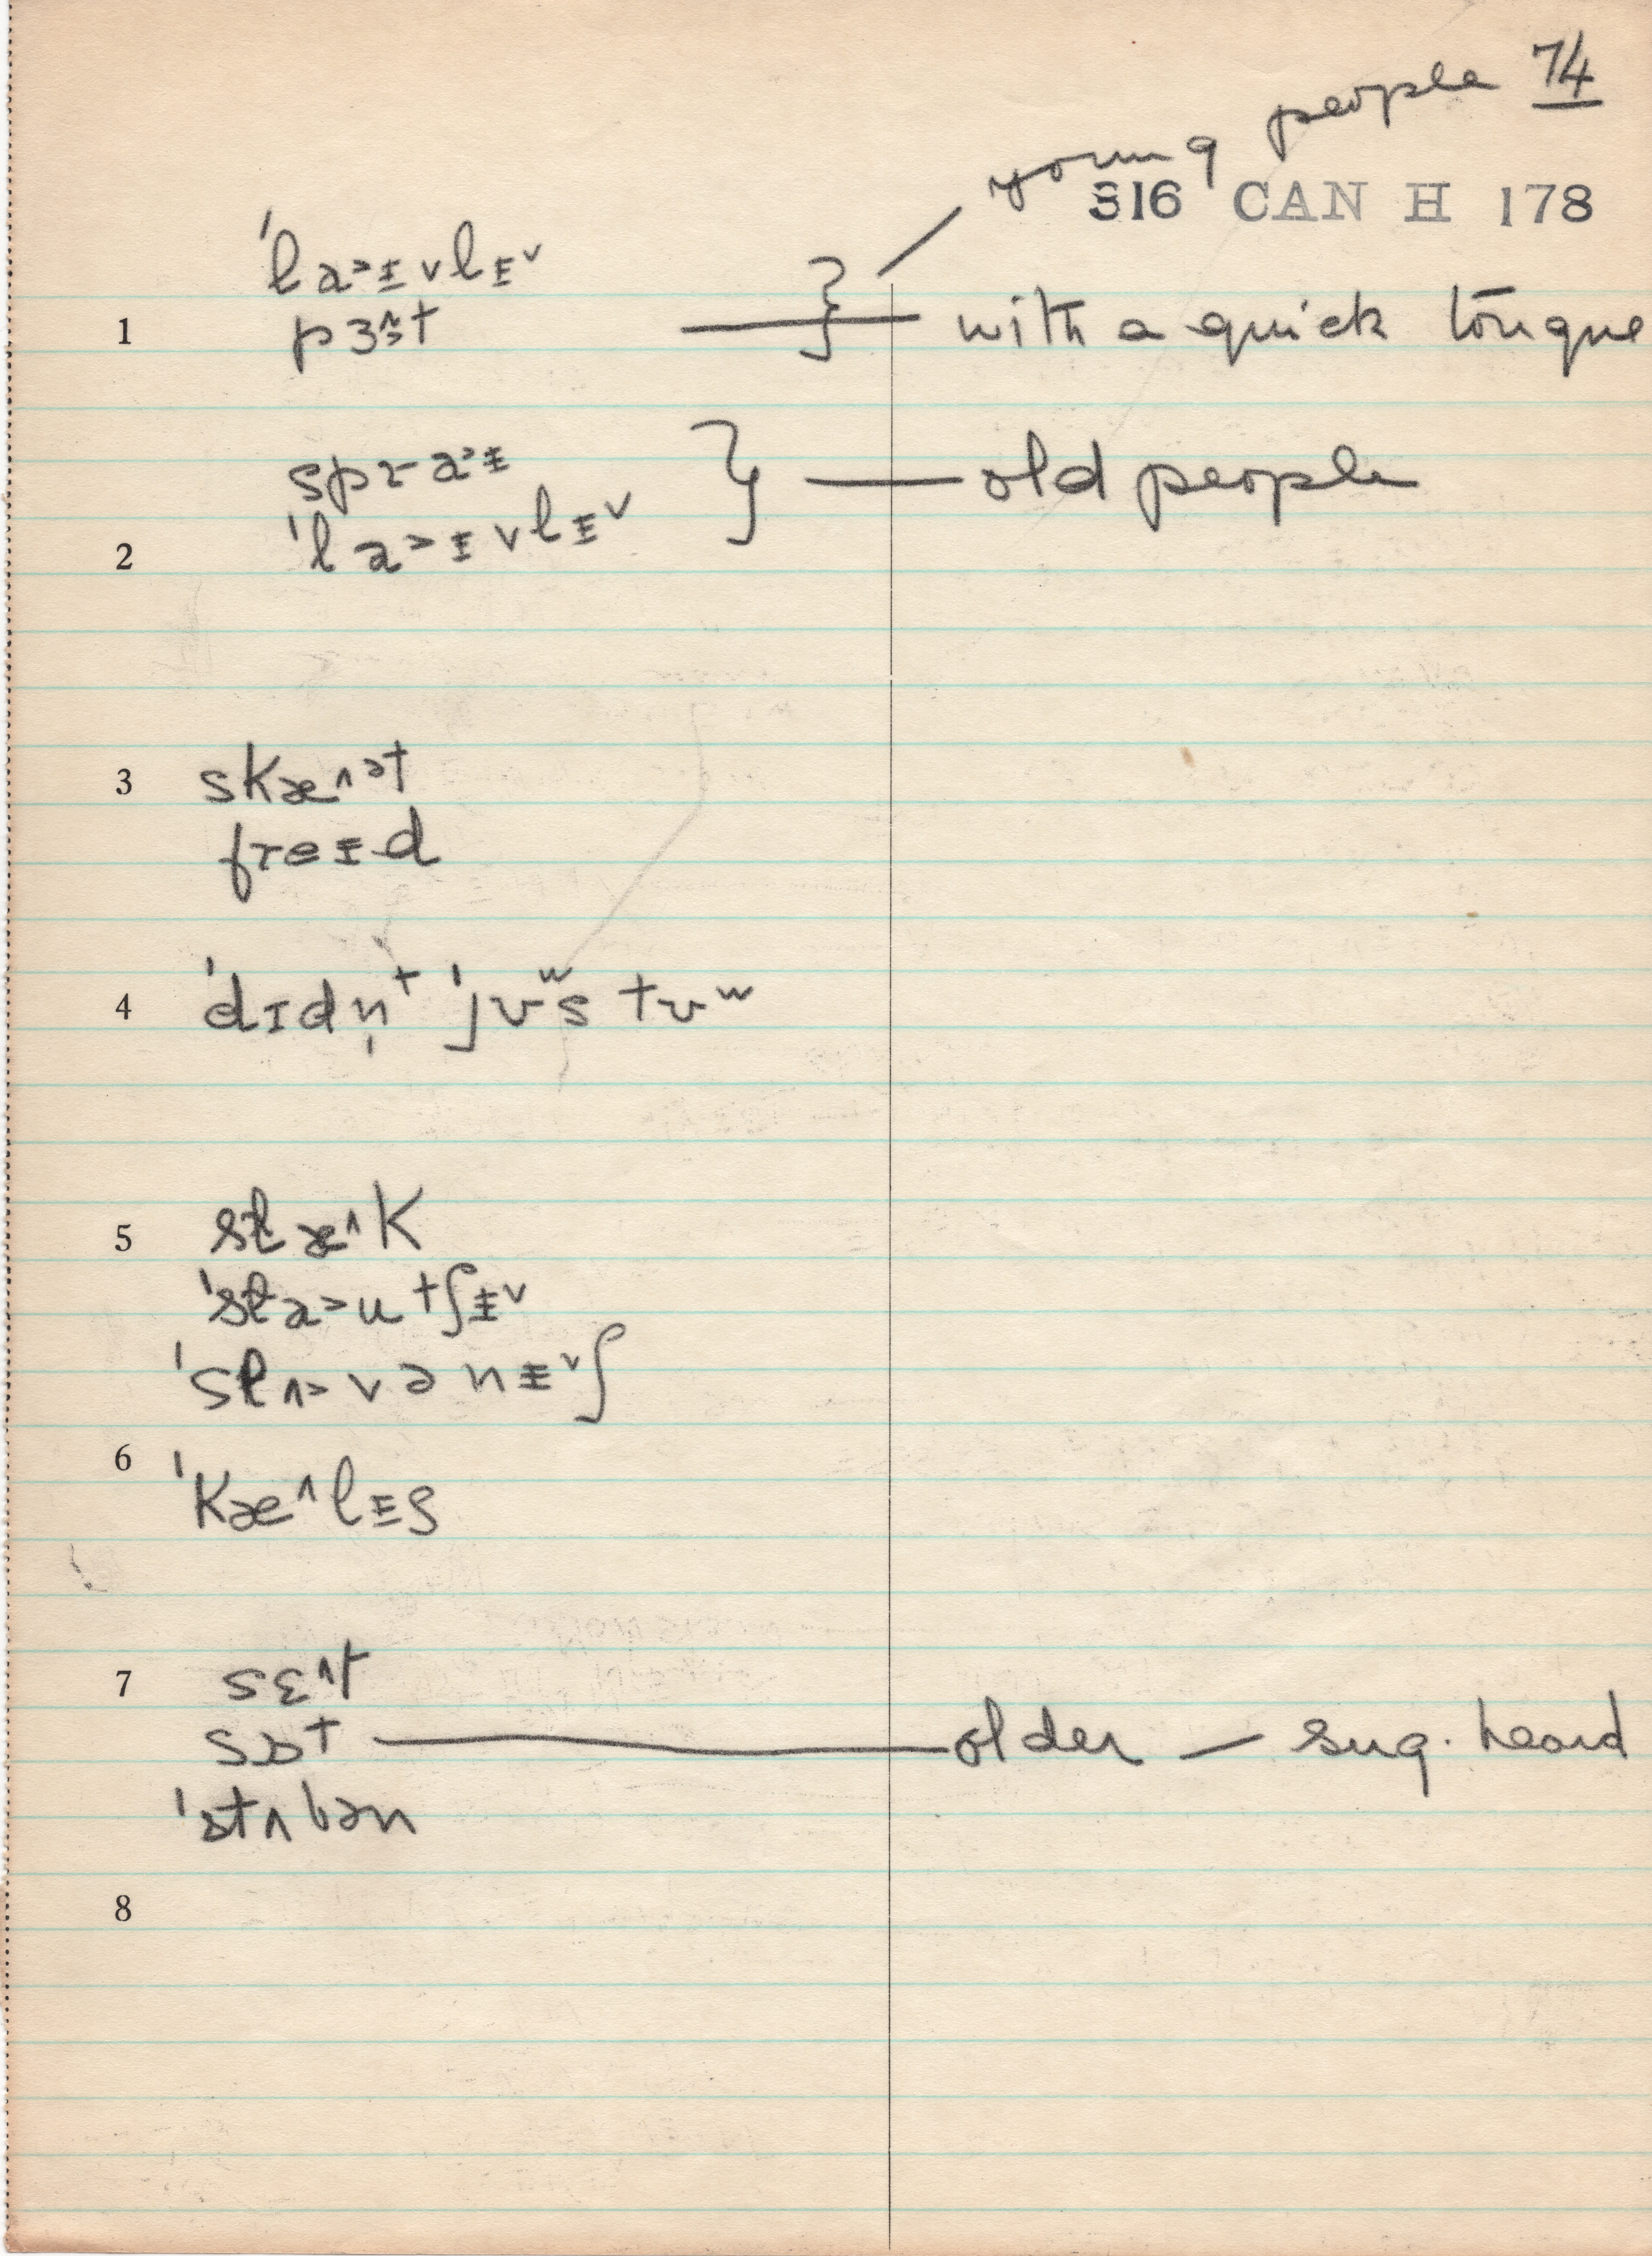 young people 74
316 CAN H 178
ˈla˃ɪ̵vlɪ̵ˇ
1 pɜ˄ːt } — with a quick tongue
spra˃ɪ̵
2 ˈla˃ɪ̵vlɪ̵ˇ } — old people
3 skæ˄ət
freɪ̵d
4 ˈdɪdn̩t ˈjʊʷs tʊʷ
5 slæ˄k
ˈsla˃utʃɪ̵ˇ
ˈslʌ˃vənɪ̵ˇʃ
6 ˈkæ˄lɪ̵s
7 sɛ˄t
sɒt — older — sug. heard
ˈstʌbən
8